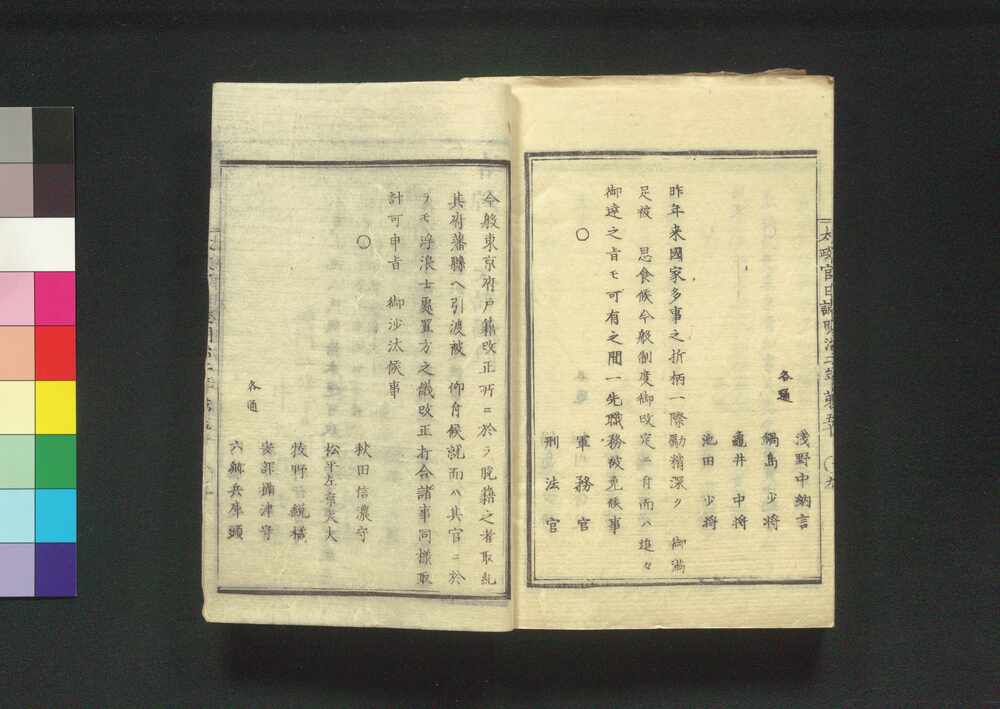 太政官日誌明治二年第五十
九
浅野中納言
各通
鍋島少将
龜井中将
池田少将
昨年来國家多事之折柄一際勵精深ク御滿
足被 思食候今般制度御改定ニ付而ハ追々
御達之旨モ可有之間一先職務被免候事
○
軍務官
刑法官
今般東京府戸籍改正所ニ於テ脱籍之者取糺
其府藩縣ヘ引渡被 仰付候就而ハ其官ニ於
テモ浮浪士處置方之儀改正打合諸事同樣取
計可申旨 御沙汰候事
○
秋田信濃守
各通
松平左京大夫
牧野
安部攝津守
六郷兵庫頭